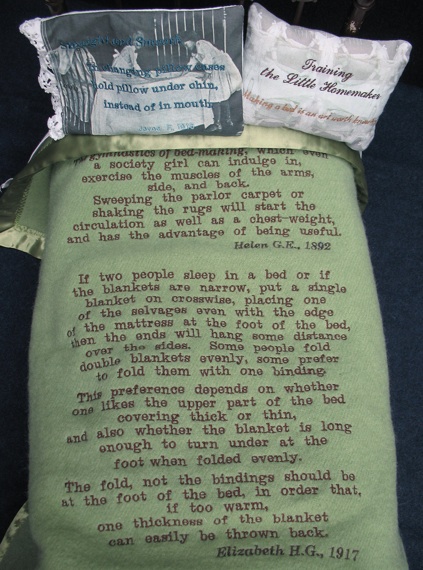 in changing pillow cases
hold pillow under chin,
instead of in mouth.
Training
the Little Homemaker
Making a bed is an art worth
The gymnastics of bed-making, which even
a society girl can indulge in,
exercise the muscles of the arms,
side, and back.
Sweeping the parlor carpet or
shaking the rugs will start the
circulation as well as a chest-weight,
and has the advantage of being useful.
Helen G.E., 1892
If two people sleep in a bed or if
the blankets are narrow, put a single
blanket on crosswise, placing one
of the selvages even with the edge
of the mattress at the foot of the bed,
then the ends will hang some distance
over the sides. Some people fold
double blankets evenly, some prefer
to fold them with one binding.
This preference depends on whether
one likes the upper part of the bed
covering thick or thin,
and also whether the blanket is long
enough to turn under at the
foot when folded evenly.
The fold, not the bindings should be
at the foot of the bed, in order that,
if too warm,
one thickness of the blanket
can easily be thrown back.
Elizabeth H.G., 1917